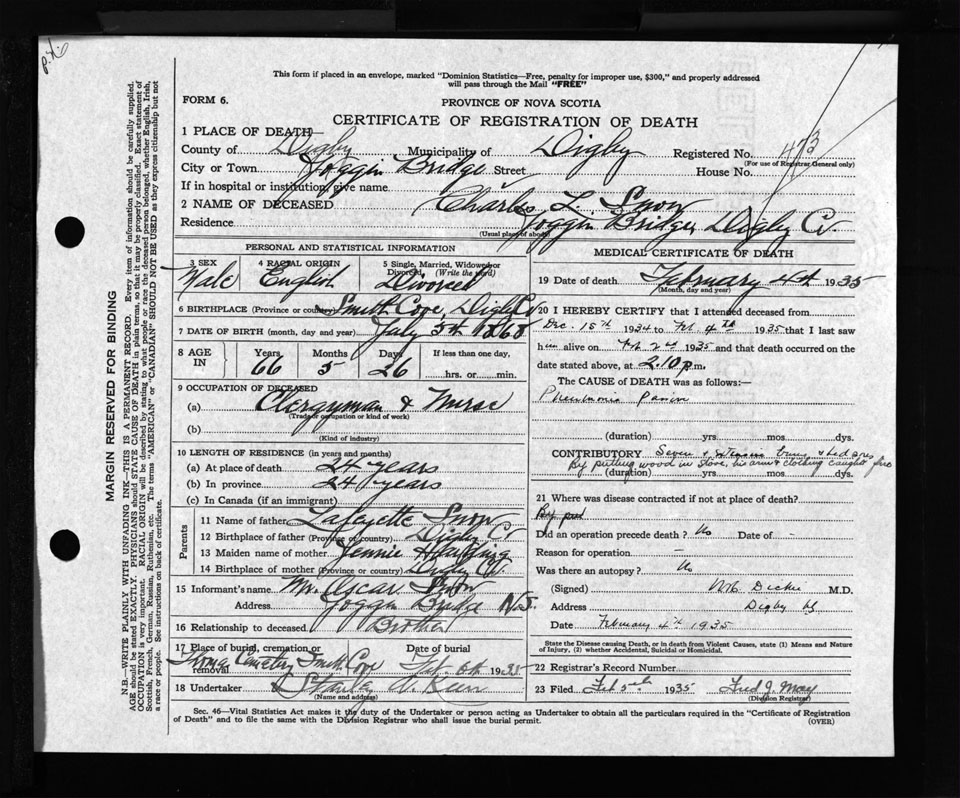 This form if placed in an envelope, marked "Dominion Statistics—Free, penalty for improper use, $300," and properly addressed
will pass through the Mail "FREE"
FORM 6.
PROVINCE OF NOVA SCOTIA
CERTIFICATE OF REGISTRATION OF DEATH
1 PLACE OF DEATH—
County of Digby Municipality of Digby Registered No. 473
(For use of Registrar General only)
City or Town Joggin Bridge Street House No.
If in hospital or institution, give name
2 NAME OF DECEASED Charles L. Snow
Residence Joggin Bridge, Digby Co.
(Usual place of abode)
PERSONAL AND STATISTICAL INFORMATION
3 SEX Male
4 RACIAL ORIGIN English
5 Single, Married, Widowed or Divorced (Write the word) Divorced
6 BIRTHPLACE (Province or country) Smith Cove, Digby Co
7 DATE OF BIRTH (month, day, year) July 5th 1868
8 AGE IN Years 66 Months 5 Days 26 If less than one day, hrs. or min.
9 OCCUPATION OF DECEASED
(a) Clergyman & Nurse
(Trade, occupation or kind of work)
(b)
(Kind of industry)
10 LENGTH OF RESIDENCE (in years and months)
(a) At place of death 24 years
(b) In province 24 years
(c) In Canada (if an immigrant)
Parents
11 Name of father Lafayette Snow
12 Birthplace of father (Province or country) Digby Co
13 Maiden name of mother Jennie Harding
14 Birthplace of mother (Province or country) Digby Co.
15 Informant's name Mr. Oscar Snow
Address Joggin Bridge N.S.
16 Relationship to deceased Brother
17 Place of burial, cremation or removal Cemetery Smith Cove Date of burial Feb. 1935
18 Undertaker Stanley
(Name and address)
MEDICAL CERTIFICATE OF DEATH
19 Date of death February 4th 1935
(Month, day and year)
20 I HEREBY CERTIFY that I attended deceased from
Dec. 15th 1934 to Feb. 4th 1935 that I last saw
him alive on Feb 2nd 1935 and that death occurred on the
date stated above, at 2.10 p.m.
The CAUSE OF DEATH was as follows:—
Pneumonia
(duration) yrs. mos. dys.
CONTRIBUTORY Severe & burns & bed sores
By putting wood in stove, his arm & clothing caught fire
(duration) yrs. mos. dys.
21 Where was disease contracted if not at place of death?
Did an operation precede death? No Date of -
Reason for operation —
Was there an autopsy? No
(Signed) Dickie M.D.
Address Digby NS
Date February 4th 1935
State the Disease causing Death, or in death from Violent Causes, state (1) Means and Nature
of Injury, (2) whether Accidental, Suicidal or Homicidal.
22 Registrar's Record Number
23 Filed Feb 5th 1935 Fred J. May
(Division Registrar)
Sec. 46—Vital Statistics Act makes it the duty of the Undertaker or person acting as Undertaker to obtain all the particulars required in the "Certificate of Registration
of Death" and to file the same with the Division Registrar who shall issue the burial permit.
(OVER)
MARGIN RESERVED FOR BINDING
N.B.—WRITE PLAINLY WITH UNFADING INK—THIS IS A PERMANENT RECORD. Every item of information should be carefully supplied.
AGE should be stated EXACTLY. PHYSICIANS should STATE CAUSE OF DEATH in plain terms, so that it may be properly classified. Exact statement of
OCCUPATION is very important. RACIAL ORIGIN will be described by stating to what people or race the deceased person belonged, whether English, Irish,
Scottish, French, German, Russian, Ruthenian, etc. The terms "AMERICAN" or "CANADIAN" SHOULD NOT BE USED as they express citizenship but not
a race or people. See instructions on back of certificate.